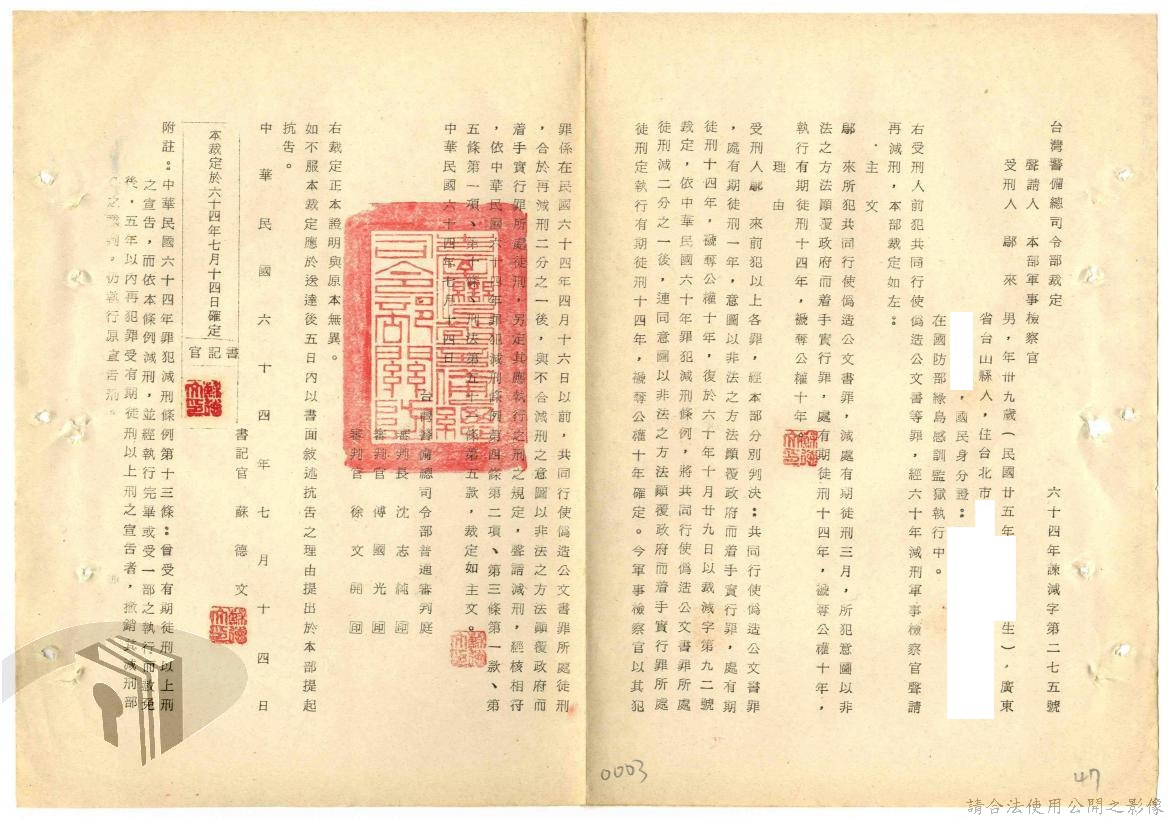 台灣警備總司令部裁定
六十四年諫減字第二七五號
聲請人　本部軍事檢察官
受刑人　鄢　來　男，年卅九歲（民國廿五年
生），廣東
省台山縣人，住台北市
，國民身分證：
在國防部綠島感訓監獄執行中。
右受刑人前犯共同行使偽造公文書等罪，經六十年減刑軍事檢察官聲請
再減刑，本部裁定如左：
主　文
鄢　來所犯共同行使偽造公文書罪，減處有期徒刑三月，所犯意圖以非
法之方法顛覆政府而着手實行罪，處有期徒刑十四年，褫奪公權十年，
執行有期徒刑十四年，褫奪公權十年。
理　由
受刑人鄢　來前犯以上各罪，經本部分別判決：共同行使偽造公文書罪
，處有期徒刑一年，意圖以非法之方法顛覆政府而着手實行罪，處有期
徒刑十四年，褫奪公權十年，復於六十年十月廿九日以裁減字第九二號
裁定，依中華民國六十年罪犯減刑條例，將共同行使偽造公文書罪所處
徒刑減二分之一後，連同意圖以非法之方法顛覆政府而着手實行罪所處
徒刑定執行有期徒刑十四年，褫奪公權十年確定。今軍事檢察官以其犯
罪係在民國六十四年四月十六日以前，共同行使偽造公文書罪所處徒刑
，合於再減刑二分之一後，與不合減刑之意圖以非法之方法顛覆政府而
着手實行罪所處徒刑，另定其應執行之刑之規定，聲請減刑，經核相符
，依中華民國六十四年罪犯減刑條例第四條第二項、第三條第一款、第
五條第一項、第十條、刑法第五十一條第五款，裁定如主文。
中華民國六十四年七月十四日
台灣警備總司令部普通審判庭
審判長　沈　志　純　印
審判官　傅　國　光　印
審判官　徐　文　開　印
右裁定正本證明與原本無異。
如不服本裁定應於送達後五日內以書面敘述抗告之理由提出於本部提起
抗告。
中華民國六十四年七月十四日
書記官　蘇　德　文
本裁定於六十四年七月十四日確定
書記官
附註：中華民國六十四年罪犯減刑條例第十三條：曾受有期徒刑以上刑
之宣告，而依本條例減刑，並經執行完畢或受一部之執行而赦免
後，五年以內再犯罪受有期徒刑以上刑之宣告者，撤銷其減刑部
之裁判，仍執行原宣告刑。
0003
47
請合法使用公開之影像